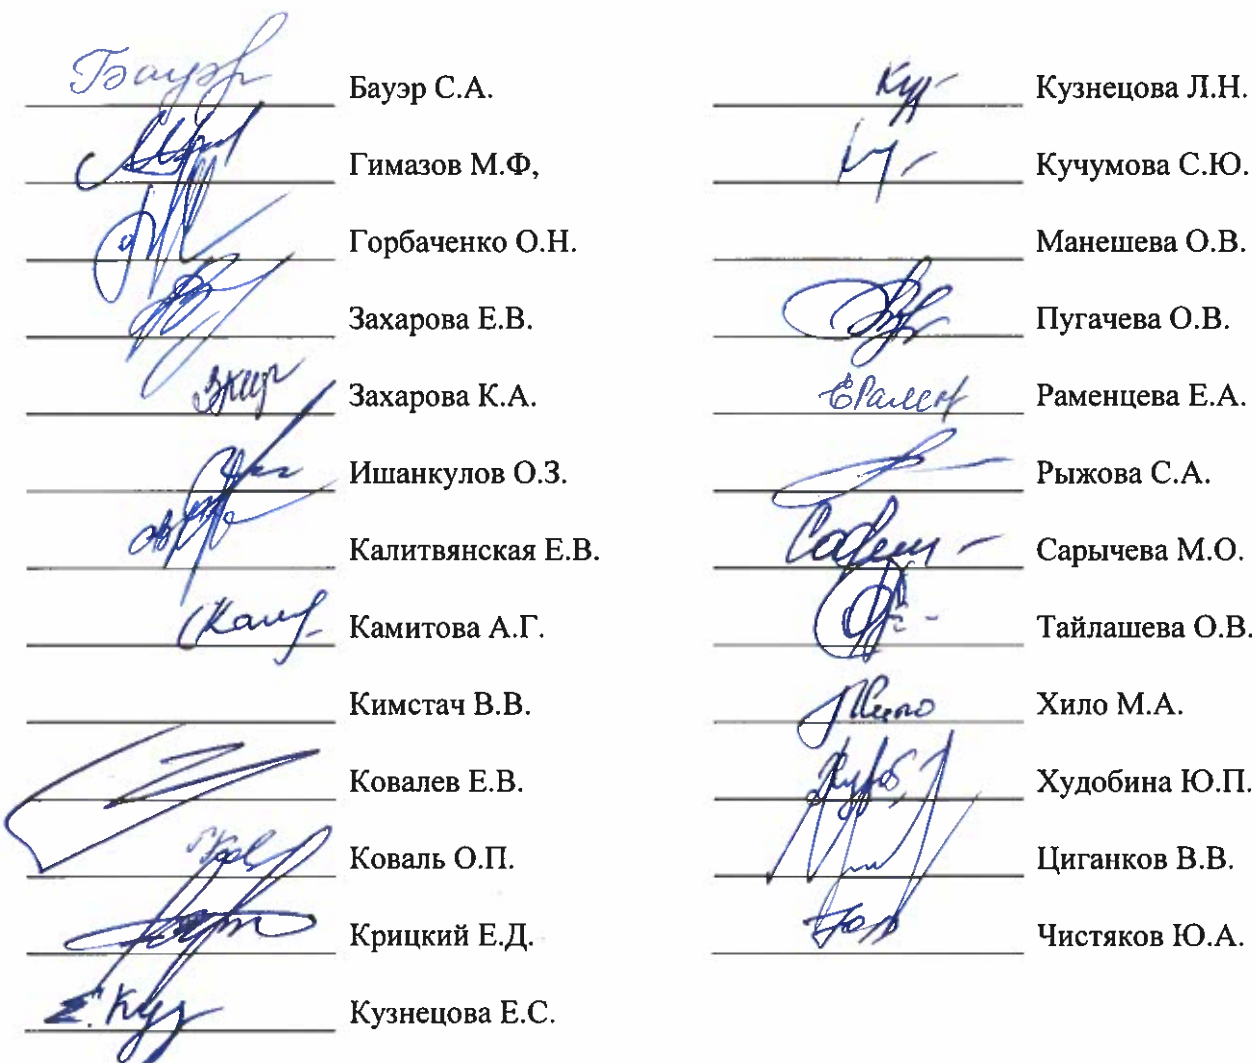 Бауэр Бауэр С.А.
Гимазов М.Ф,
Горбаченко О.Н.
Захарова Е.В.
Захарова К.А.
Ишанкулов О.З.
Калитвянская Е.В.
Камитова А.Г.
Кимстач В.В.
Ковалев Е.В.
Коваль О.П.
Крицкий Е.Д.
Е.Куз Кузнецова Е.С.
Кузнецова Л.Н.
Кучумова С.Ю.
Манешева О.В.
Пугачева О.В.
ЕРамен Раменцева Е.А.
Рыжова С.А.
Сарычева М.О.
Тайлашева О.В.
Хило М.А.
Худобина Ю.П.
Циганков В.В.
Чистяков Ю.А.